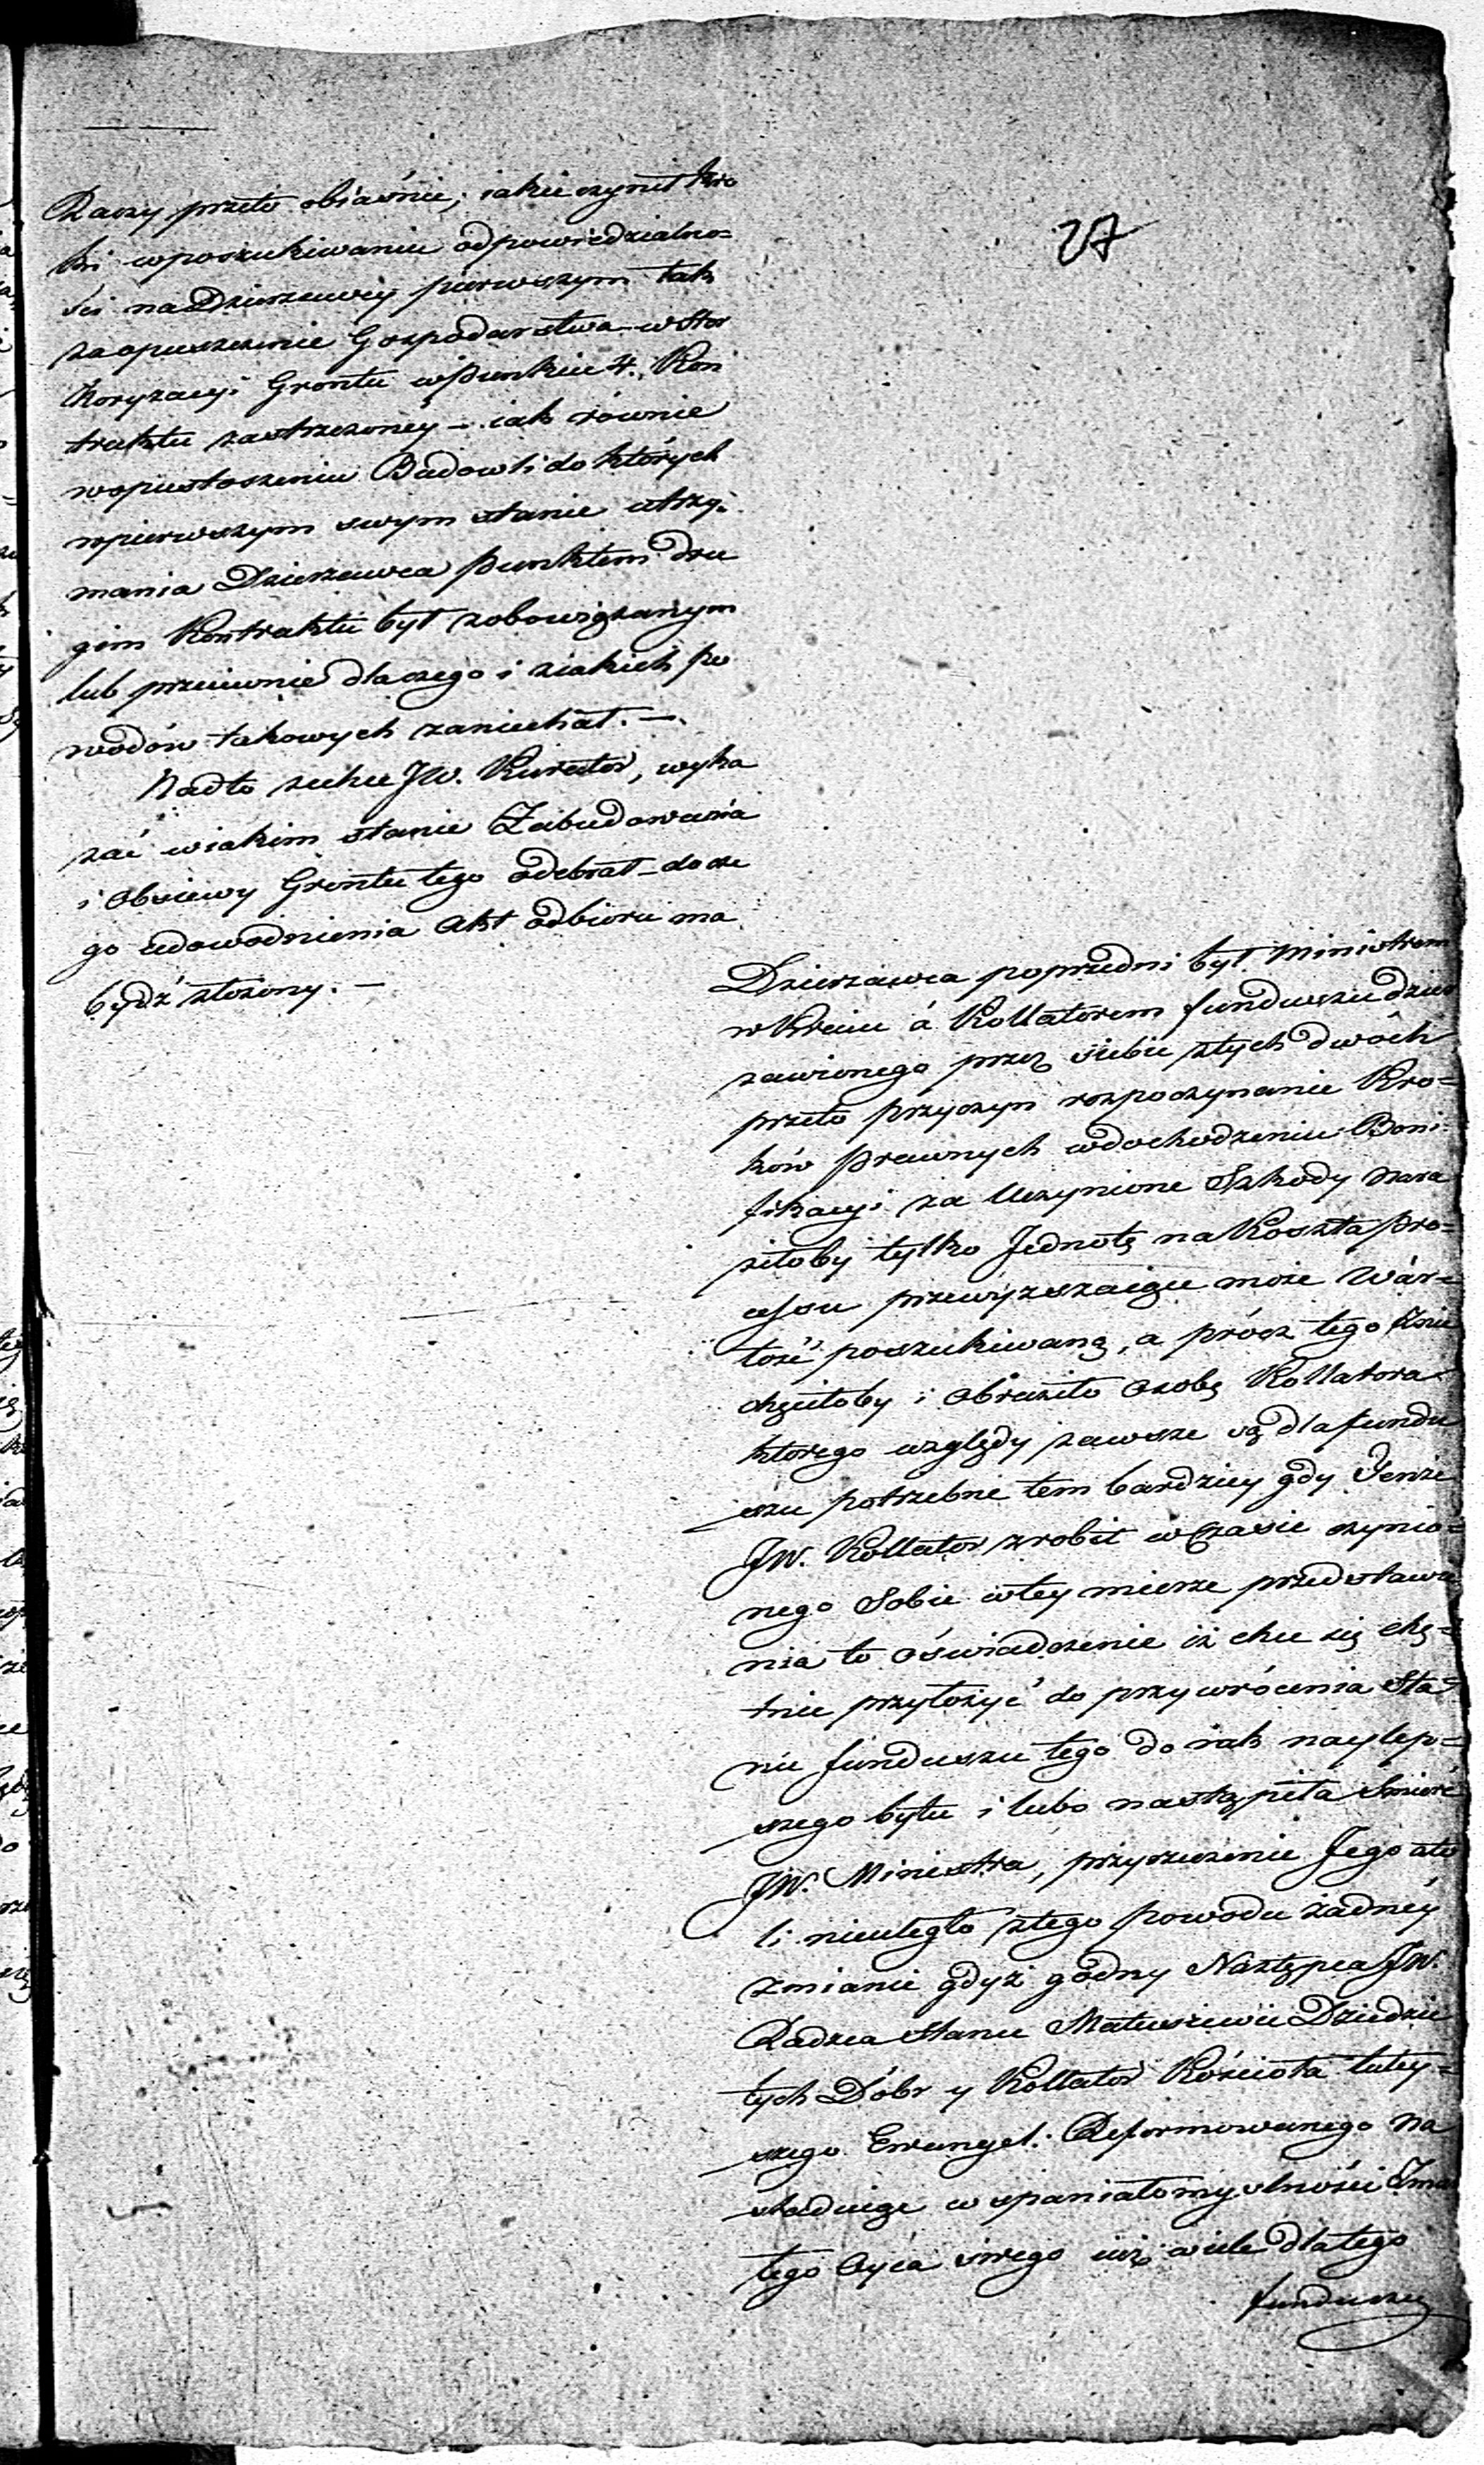 27
Raczy przeto obiaśnić, iakie czynił kro
ki wposzukiwaniu odpowiedzialno=
ści na Dzierzawcy pierwszym tak
za opuszczenie Gospodarstwa w
Gruntu wPunkcie 4. Kon
traktu zastrzezoney – iak równie
wopustoszeniu Budowli do których
wpierwszym swym stanie utrzy=
mania Dzierzawca punktem dru
gim Kontraktu był zobowiązanym
lub przeciwnie dlaczego i ziakich po
wodów takowych zaniechał. –
Nadto zechce JW. Kurator, wyka
zać wiakim stanie Zabudowania
i Obsiewy Gruntu tego odebrał – do cze
go udowodnienia Akt odbioru ma
bydź złożony. –
Dzierzawca poprzedni był Ministrem
w Kraiu á Kollatorem funduszu dzier
zawionego przez siebie ztych dwóch
przeto przyczyn rozpoczynanie Kro=
ków prawnych wdochodzeniu Boni=
fikacyi za Uczynione Szkody nara
ziłoby tylko Jednotę na Koszta pro=
cessu przewyzszaiące może War=
tość poszukiwaną, a prócz tego znie
chęciłoby i obraziło Osobę Kollatora
którego względy zawsze są dla fundu
szu potrzebne tem bardziey gdy Tenże
JW. Kollator zrobił wCzasie czynio=
nego Sobie wtey mierze przedstawie
nia to oświadczenie iż chce się chę=
tnie przyłożyć do przywrócenia Sta=
nu funduszu tego do iak naylep=
szego bytu i lubo nastąpiła Smierć
JW. Ministra, przyrzeczenie Jego ato
li nieuległo ztego powodu żadney
zmianie gdyż godny Następca JW.
Radzca Stanu Matuszewic Dziedzic
tych Dóbr y Kollator Kościoła tutey=
szego Ewangel: Reformowanego Na
śladuiąc wspaniałomyślności Zma
łego Oyca swego iuż wiele dla tego
funduszu